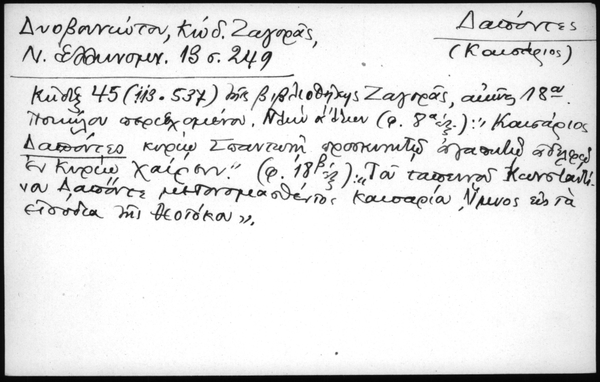 Δυοβουνιώτου, Κώδ. Ζαγορᾶς,
Ν. Ἑλληνομν. 13 σ. 249
Δαπόντες
(Καισάριος)
Κώδιξ 45 (113. 537) τῆς βιβλιοθήκης Ζαγορᾶς, αἰῶν. 18ου.
Ποικίλου περιεχομένου. (φ. 8α ἑξ.): "Καισάριος
Δαπόντες κυρίῳ Σπαντωνῇ προσκυνητῷ ἀγαπητῷ ἀδελφῷ
ἐν Κυρίῳ χαίρειν." (φ. 18β ἑξ): "Τοῦ ταπεινοῦ Κωνσταντί-
νου Δαπόντε μετονομασθέντος Καισαρίου, Ὕμνος εἰς τὰ
εἰσόδια τῆς Θεοτόκου».